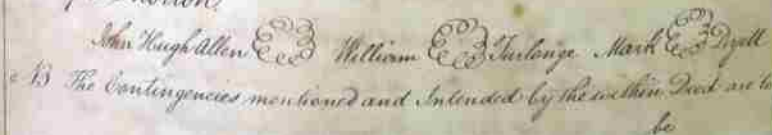 John Hugh Allen William Furlonge Mark Dyett
NB The Contingencies mentioned and Intended by the within Deed are to
be